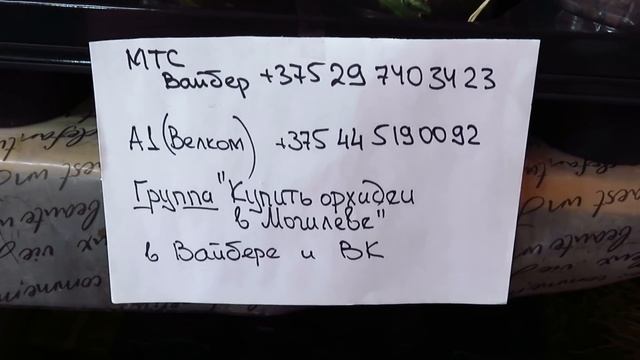 МТС
Вайбер +375 29 740 34 23
А1 (Велком) +375 44 519 00 92
Группа "Купить орхидеи
в Могилёве"
в Вайбере и ВК